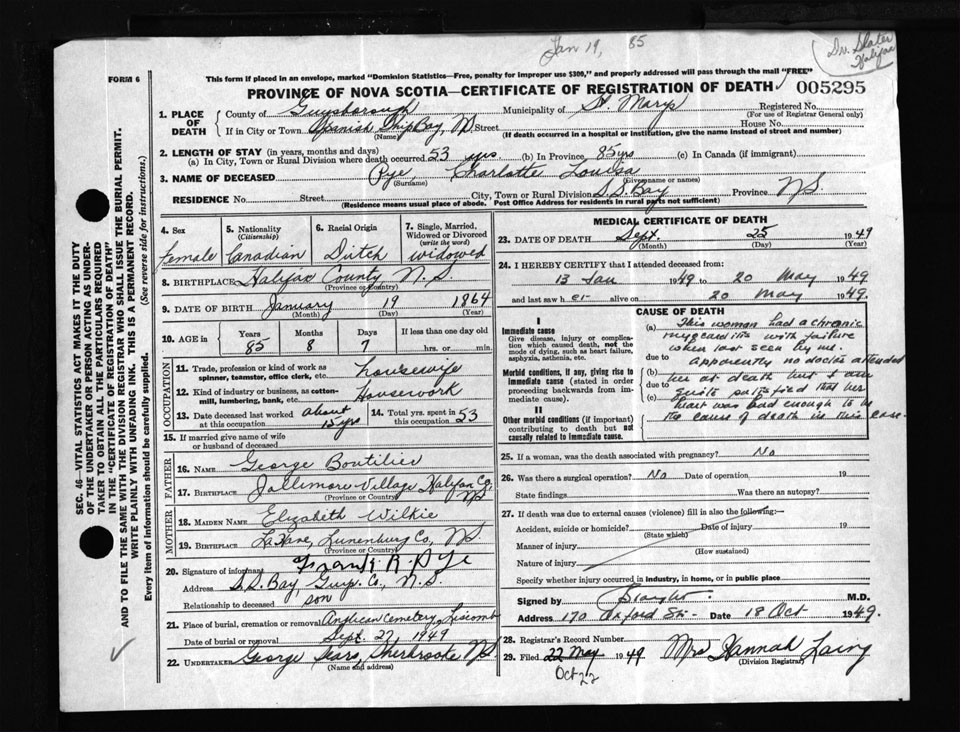 Jan 19, 85
Dr. Slater
Halifax
FORM 6
This form if placed in an envelope, marked "Dominion Statistics—Free, penalty for improper use $300," and properly addressed will pass through the mail "FREE"
PROVINCE OF NOVA SCOTIA—CERTIFICATE OF REGISTRATION OF DEATH 005295
1. PLACE OF DEATH County of Guysborough Municipality of St. Marys Registered No.
(For use of Registrar General only)
If in City or Town Spanish Ship Bay, N.S. Street House No.
(Name) (If death occurred in a hospital or institution, give the name instead of street and number)
2. LENGTH OF STAY (in years, months and days)
(a) In City, Town or Rural Division where death occurred 53 yrs. (b) In Province 85 yrs (c) In Canada (if immigrant)
3. NAME OF DECEASED Pye, Charlotte Louisa
(Surname) (Given name or names)
RESIDENCE No. Street City, Town or Rural Division S.S. Bay Province N.S.
(Residence means usual place of abode. Post Office Address for residents in rural parts not sufficient)
4. Sex 5. Nationality (Citizenship) 6. Racial Origin 7. Single, Married, Widowed or Divorced (write the word)
female Canadian Dutch widowed
8. BIRTHPLACE Halifax County N.S.
(Province or Country)
9. DATE OF BIRTH January 19 1864
(Month) (Day) (Year)
10. AGE in Years Months Days If less than one day old
85 8 7 hrs. or min.
OCCUPATION
11. Trade, profession or kind of work as spinner, teamster, office clerk, etc. housewife
12. Kind of industry or business, as cotton-mill, lumbering, bank, etc. Housework
13. Date deceased last worked at this occupation about 15 yrs 14. Total yrs. spent in this occupation 53
15. If married give name of wife or husband of deceased
FATHER
16. NAME George Boutilier
17. BIRTHPLACE Jollimore Village Halifax Co, N.S.
(Province or Country)
MOTHER
18. MAIDEN NAME Elizabeth Wilkie
19. BIRTHPLACE LaHave, Lunenburg Co, N.S.
(Province or Country)
20. Signature of informant Frank R. Pye
Address S.S. Bay, Guys. Co., N.S.
Relationship to deceased son
21. Place of burial, cremation or removal Anglican Cemetery, Liscomb
Date of burial or removal Sept. 27, 1949
22. UNDERTAKER George Sears, Sherbrooke N.S.
(Name and address)
MEDICAL CERTIFICATE OF DEATH
23. DATE OF DEATH Sept. 25 1949
(Month) (Day) (Year)
24. I HEREBY CERTIFY that I attended deceased from:
13 Jan 1949 to 20 May 1949
and last saw her alive on 20 May 1949.
CAUSE OF DEATH
I
Immediate cause
Give disease, injury or complication which caused death, not the mode of dying, such as heart failure, asphyxia, asthenia, etc.
Morbid conditions, if any, giving rise to immediate cause (stated in order proceeding backwards from immediate cause).
II
Other morbid conditions (if important) contributing to death but not causally related to immediate cause.
(a) This woman had a chronic
myocarditis with failure
when last seen by me.
due to apparently no doctor attended
(b) her at death but I am
due to
(c) quite satisfied that her
heart was bad enough to be
the cause of death in this case.
25. If a woman, was the death associated with pregnancy? No
26. Was there a surgical operation? No Date of operation 19
State findings Was there an autopsy?
27. If death was due to external causes (violence) fill in also the following:—
Accident, suicide or homicide? Date of injury 19
(State which)
Manner of injury
(How sustained)
Nature of injury
Specify whether injury occurred in industry, in home, or in public place
Signed by M.D.
Address 170 Oxford St. Date 18 Oct 1949.
28. Registrar's Record Number
29. Filed 22 May 1949 Mrs Hannah Laing
Oct 22 (Division Registrar)
SEC. 46—VITAL STATISTICS ACT MAKES IT THE DUTY
OF THE UNDERTAKER OR PERSON ACTING AS UNDER-
TAKER TO OBTAIN ALL THE PARTICULARS REQUIRED
IN THE "CERTIFICATE OF REGISTRATION OF DEATH"
AND TO FILE THE SAME WITH THE DIVISION REGISTRAR WHO SHALL ISSUE THE BURIAL PERMIT.
WRITE PLAINLY WITH UNFADING INK. THIS IS A PERMANENT RECORD.
Every item of information should be carefully supplied. (See reverse side for instructions.)